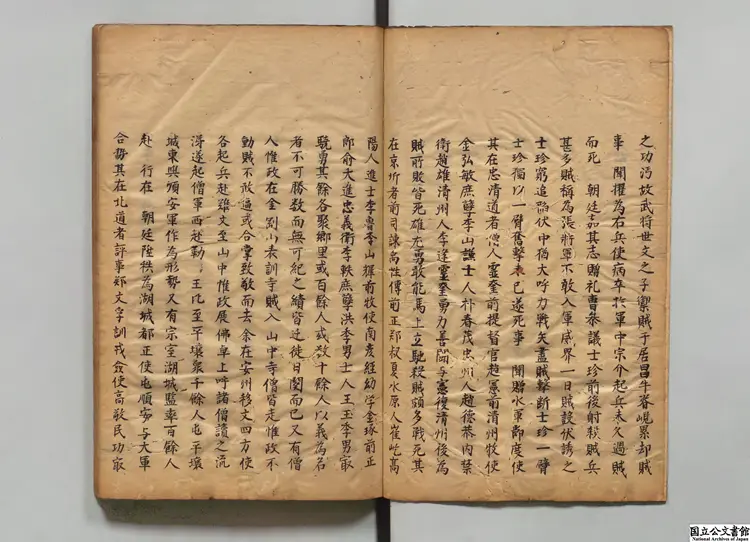 之功沔故武將世文之子禦賊于居昌牛脊峴累却賊
事 聞擢為右兵使病卒於軍中宗介起兵未久遇賊
而死 朝廷嘉其志贈礼曹叅議士珍前後射殺賊兵
甚多賊稱為張將軍不敢入軍威界一日賊設伏誘之
士珍窮追陷伏中猶大呼力戰矢盡賊擊断士珍一臂
士珍獨以一臂奮擊未已遂死事 聞贈水軍節度使
其在忠清道者僧人靈奎前提督官趙憲前清州牧使
金弘敏庶孼李山謙士人朴春茂忠州人趙德恭内禁
衛趙雄清州人李逢靈奎勇力善鬪与憲復清州後為
賊所敗皆死雄尤勇敢能馬上立馳殺賊頗多戰死其
在京圻者前司諫禹性傳前正郑叔夏水原人崔屹高
陽人進士李魯李山輝前牧使南彦經幼学金琢前正
郎兪大進忠義衛李軼庶孼洪季男士人王玉季男㝡
驍勇其餘各聚鄉里或百餘人或数十餘人以義為名
者不可勝数而無可紀之績皆迁徙日而已又有僧
人惟政在金剛山表訓寺賊入山中寺僧皆走惟政不
動賊不敢逼或合掌致敬而去余在安州移文四方使
各起兵赴難文至山中惟政展佛卓上呼諸僧讀之流
涕遂起僧軍西赴勤 王比至平壤衆千餘人屯平壤
城東與順安軍作為形勢又有宗室湖城監率百餘人
赴 行在 朝廷陞秩為湖城都正使屯順安与大軍
合勢其在北道者評事郑文孚訓戎僉使高敬民功㝡
国立公文書館
National Archives of Japan